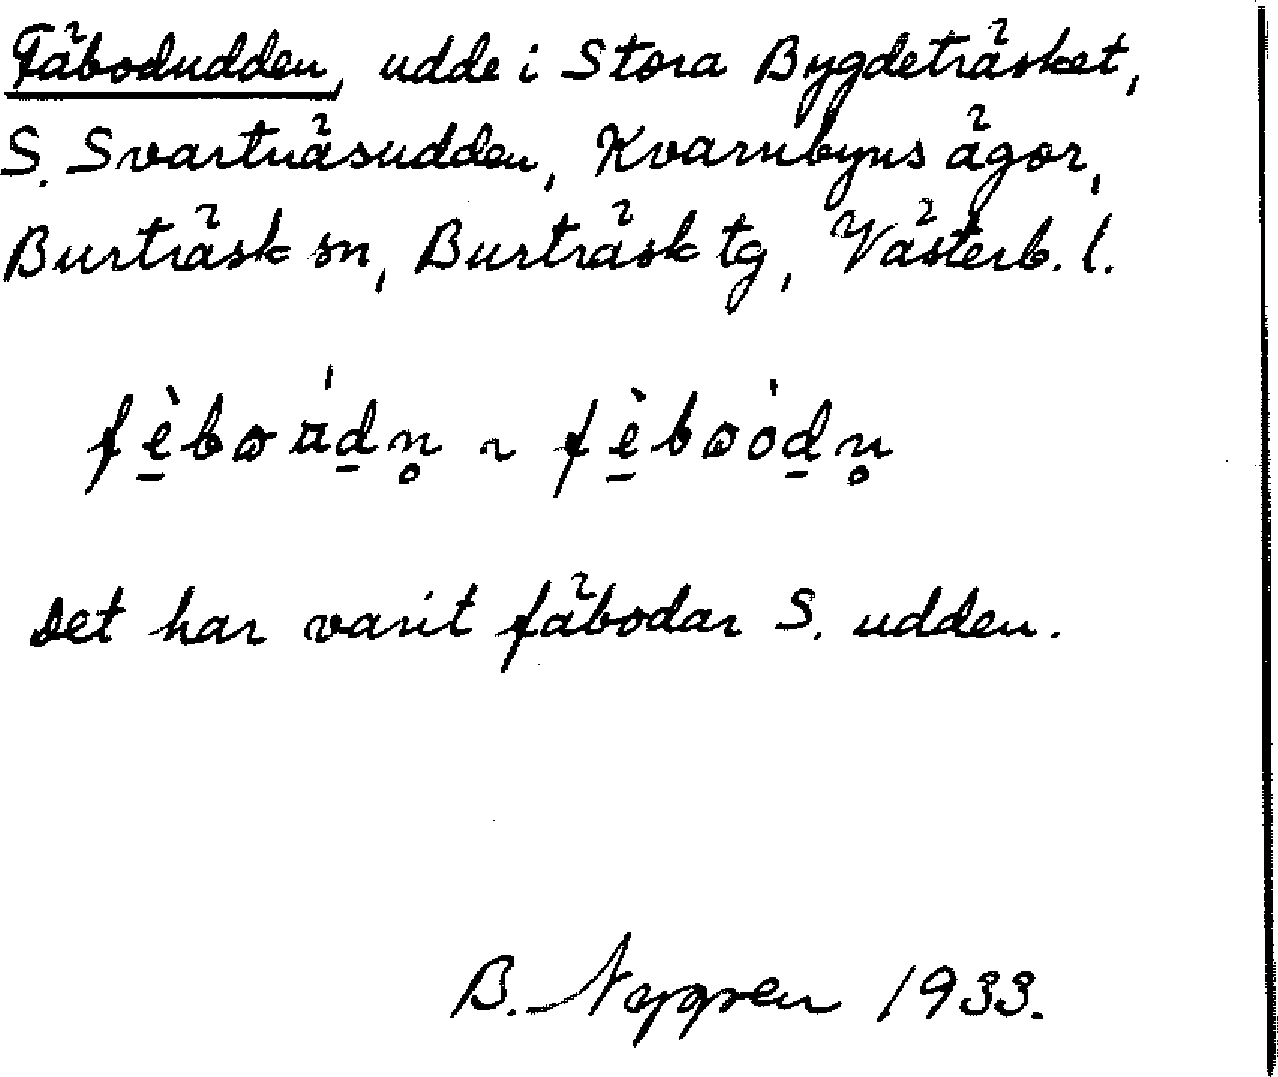 Fäbodudden, udde i Stora Bygdeträsket,
S. Svartnäsudden, Kvarnbyns ägor,
Burträsk sn, Burträsk tg, Västerb. l.
Det har varit fäbodar S. udden.
B. Nygren 1933.